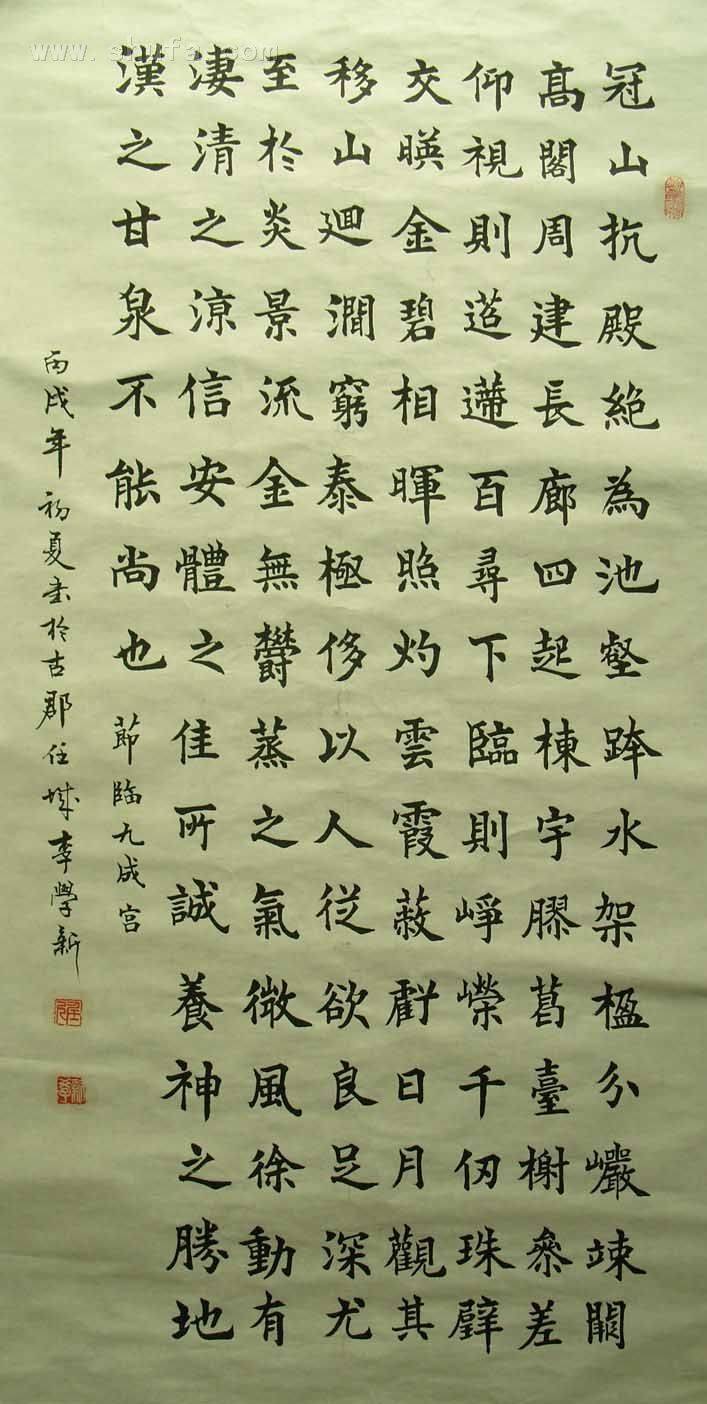 冠山抗殿絶為池壑跨水架楹分巖竦闕
髙閣周建長廊四起棟宇膠葛臺榭參差
仰視則迢遰百尋下臨則崢嶸千仞珠璧
交暎金碧相暉照灼雲霞蔽虧日月觀其
移山迴澗窮泰極侈以人從欲良足深尤
至於炎景流金無欝蒸之氣微風徐動有
淒清之涼信安體之佳所誠養神之勝地
漢之甘泉不能尚也 節臨九成宮
丙戌年初夏書於古郡任城李學新
www.shufa.com